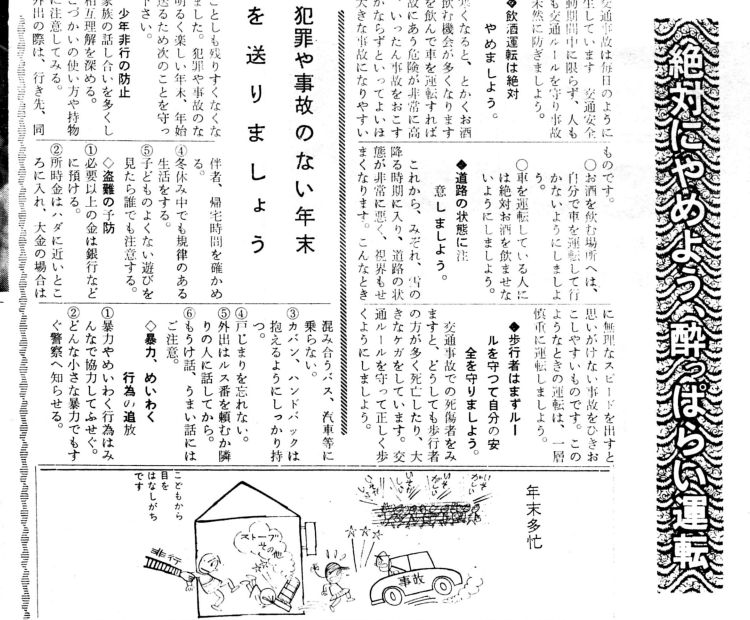 絶対にやめよう、酔っぱらい運転
交通事故は毎日のように
生しています 交通安全
動期間中に限らず、人も
も交通ルールを守り事故
未然に防ぎましょう。
◆飲酒運転は絶対
やめましょう。
寒くなると、とかくお酒
飲む機会が多くなります
を飲んで車を運転すれば
故にあう危険が非常に高
、いったん事故をおこす
かならずといってよいほ
大きな事故になりやすい
ものです。
○お酒を飲む場所へは、
自分で車を運転して行
かないようにしましょ
う。
○車を運転している人に
は絶対お酒を飲ませな
いようにしましょう。
◆道路の状態に注
意しましょう。
これから、みぞれ、雪の
降る時期に入り、道路の状
態が非常に悪く、視界もせ
まくなります。こんなとき
に無理なスピードを出すと
思いがけない事故をひきお
こしやすいものです。この
ようなときの運転は、一層
慎重に運転しましょう。
◆歩行者はまずルー
ルを守つて自分の安
全を守りましょう。
交通事故での死傷者をみ
ますと、どうしても歩行者
の方が多く死亡したり、大
きなケガをしています。交
通ルールを守って正しく歩
くようにしましょう。
犯罪や事故のない年末
を送りましょう
ことしも残りすくなくな
ました。犯罪や事故のな
明るく楽しい年末、年始
送るため次のことを守っ
下さい。
少年非行の防止
家族の話し合いを多くし
相互理解を深める。
こづかいの使い方や持物
に注意してみる。
外出の際は、行き先、同
伴者、帰宅時間を確かめ
る。
④冬休み中でも規律のある
生活をする。
⑤子どものよくない遊びを
見たら誰でも注意する。
◇盗難の予防
①必要以上の金は銀行など
に預ける。
②所時金はハダに近いとこ
ろに入れ、大金の場合は
混み合うバス、汽車等に
乗らない。
③カバン、ハンドバックは
抱えるようにしっかり持
つ。
④戸じまりを忘れない。
⑤外出はルス番を頼むか隣
りの人に話してから。
⑥もうけ話、うまい話には
ご注意。
◇暴力、めいわく
行為の追放
①暴力やめいわく行為はみ
んなで協力してふせぐ。
②どんな小さな暴力でもす
ぐ警察へ知らせる。
年末多忙
事故
ストーブ
その他
非行
こどもから
目を
はなしがち
です